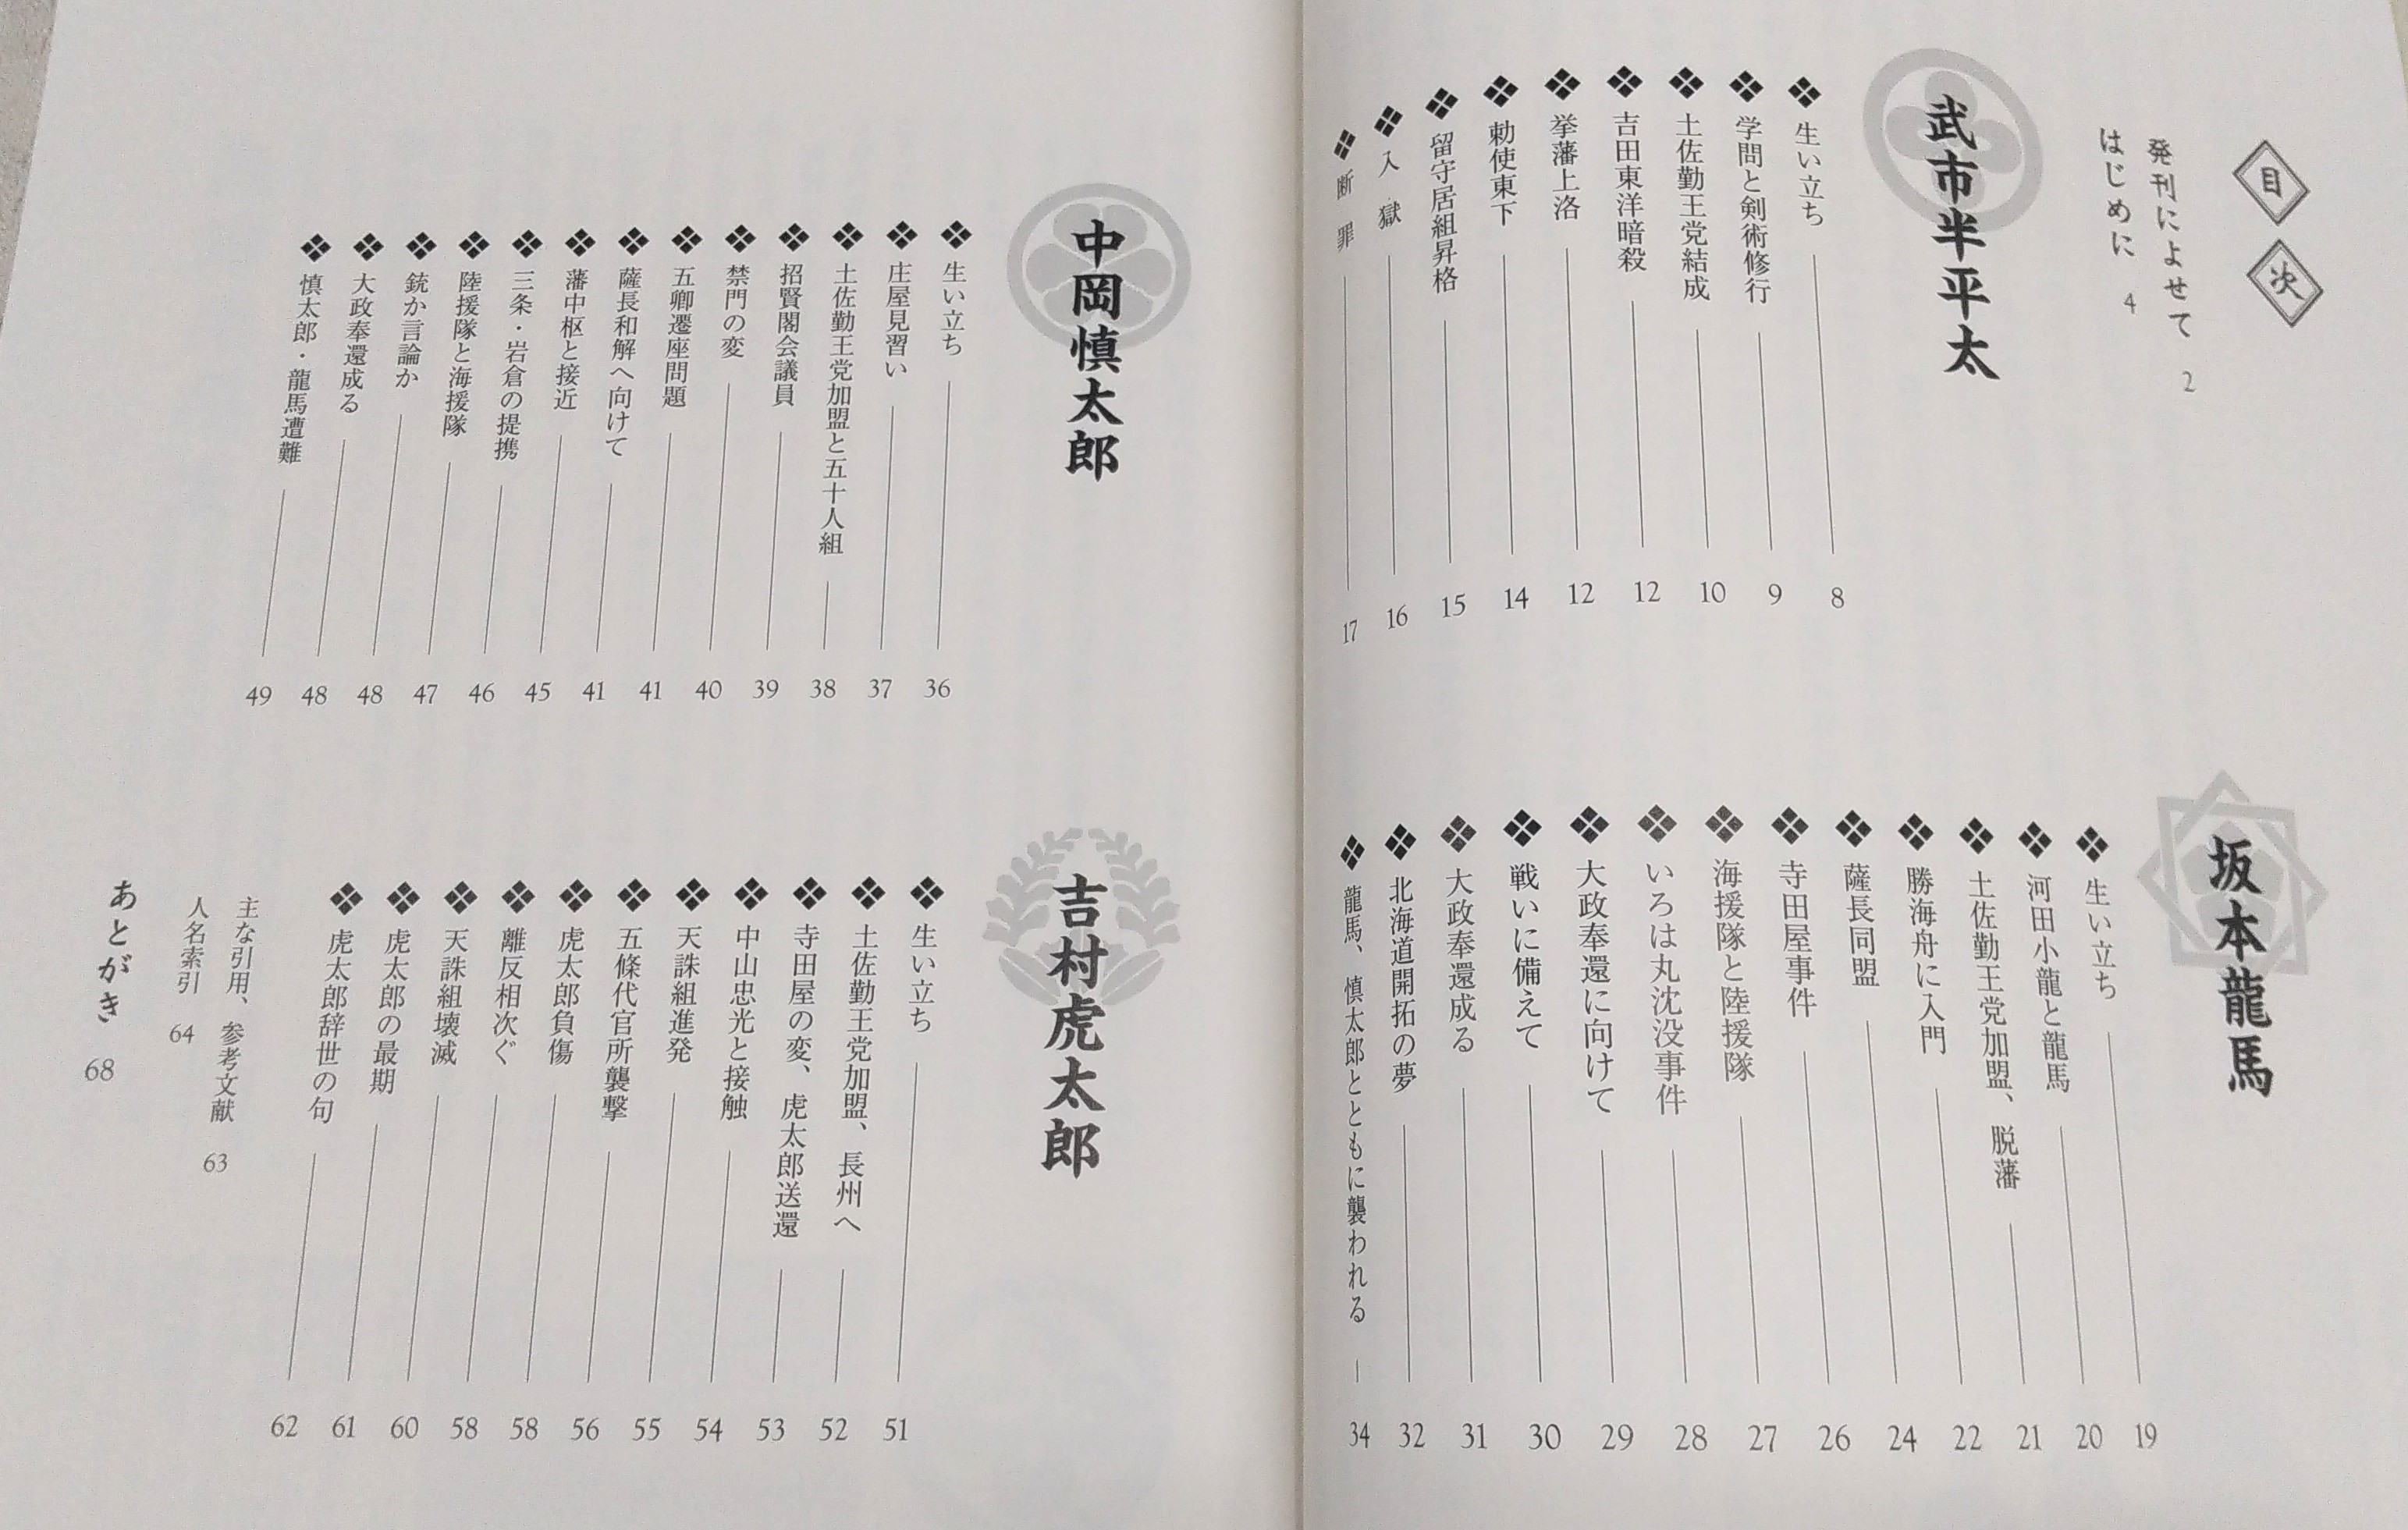 目次
発刊によせて 2
はじめに 4
武市半平太
生い立ち 8
学問と剣術修行 9
土佐勤王党結成 10
吉田東洋暗殺 12
挙藩上洛 12
勅使東下 14
留守居組昇格 15
入獄 16
断罪 17
坂本龍馬
生い立ち 19
河田小龍と龍馬 20
土佐勤王党加盟、脱藩 21
勝海舟に入門 22
薩長同盟 24
寺田屋事件 26
海援隊と陸援隊 27
いろは丸沈没事件 28
大政奉還に向けて 29
戦いに備えて 30
大政奉還成る 31
北海道開拓の夢 32
龍馬、慎太郎とともに襲われる 34
中岡慎太郎
生い立ち 36
庄屋見習い 37
土佐勤王党加盟と五十人組 38
招賢閣会議員 39
禁門の変 40
五卿遷座問題 41
薩長和解へ向けて 41
藩中枢と接近 45
三条・岩倉の提携 46
陸援隊と海援隊 47
銃か言論か 48
大政奉還成る 48
慎太郎・龍馬遭難 49
吉村虎太郎
生い立ち 51
土佐勤王党加盟、長州へ 52
寺田屋の変、虎太郎送還 53
中山忠光と接触 54
天誅組進発 55
五條代官所襲撃 56
虎太郎負傷 58
離反相次ぐ 58
天誅組壊滅 60
虎太郎の最期 61
虎太郎辞世の句 62
主な引用、参考文献 63
人名索引 64
あとがき 68